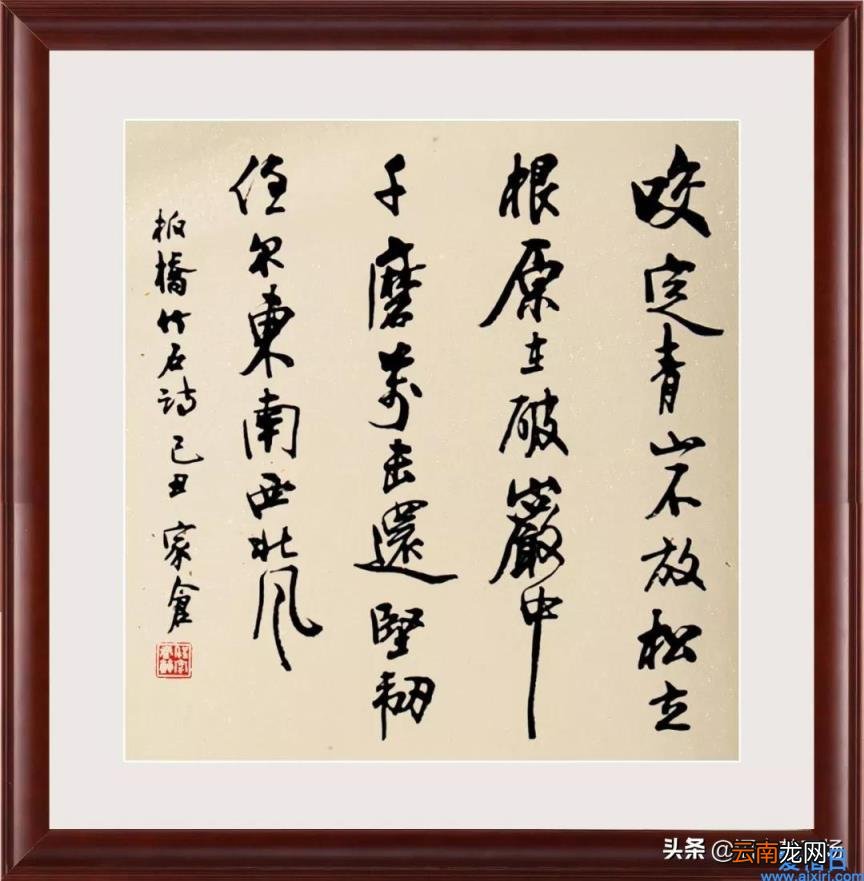 咬定青山不放松立
根原在破巖中
千磨萬击還堅韧
任尔東南西北风
板橋竹石詩 己丑 家倉
头条
云南龙网
www.aixiri.com